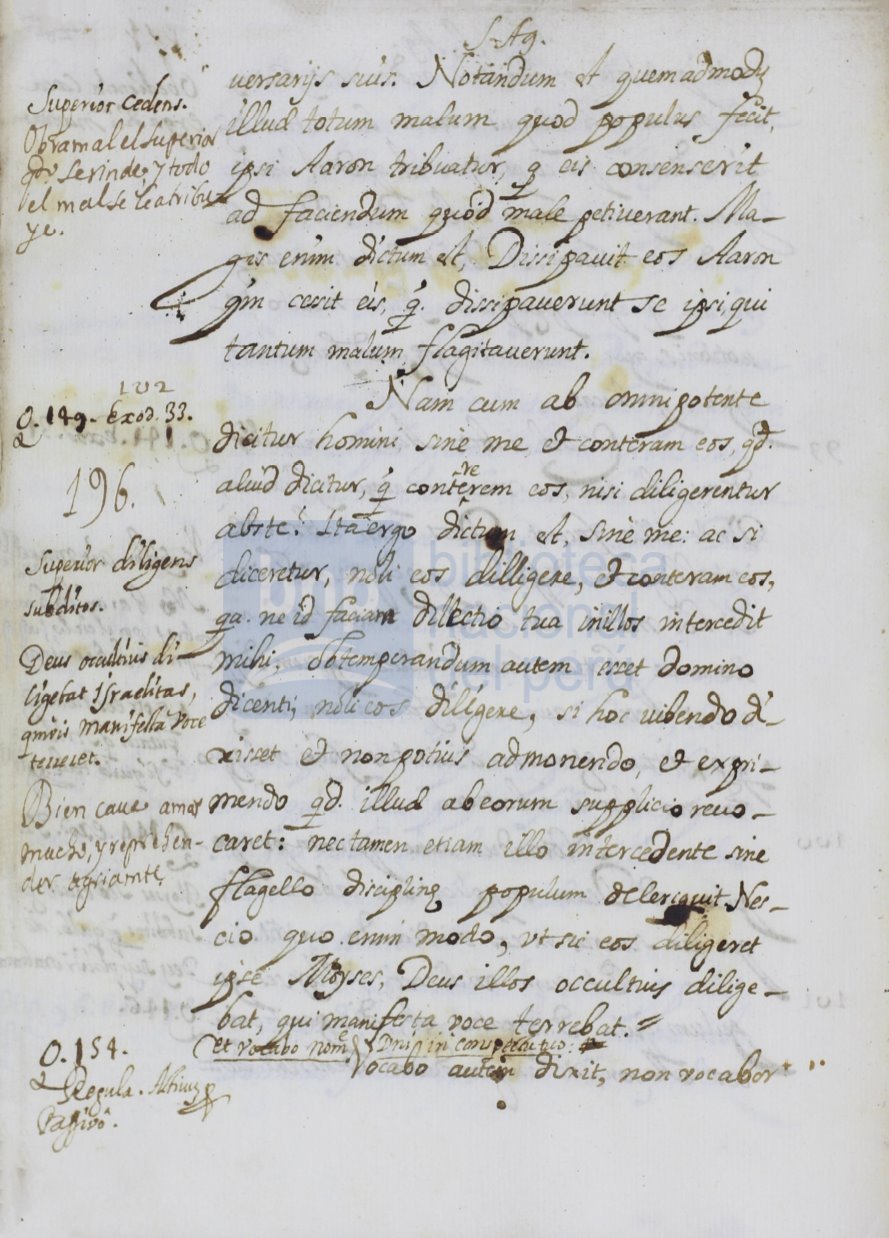 S. Ag.
versarijs suis. Notandum est quemadmodũ
illud totum malum quod populus fecit,
ipsi Aaron tribuatur, q̃ eis consenserit
ad faciendum quod male petiverant. Ma-
gis enim dictum est, Dissipavit eos Aaron
qm̃ cessit eis, q̃. dissipaverunt se ipsi, qui
tantum malum flagitaverunt.
Superior cedens.
Obra mal el superior
qdo se rinde, y todo
el mal se le atribu-
ye.
102
Q. 149. Exod. 33.
196.
Nam cum ab omnipotente
dicitur homini, sine me, et conteram eos, qd.
aliud dicitur, q̃ contererem eos, nisi diligerentur
abste? Ita ergo dictum est, sine me: ac si
diceretur, noli eos dilligere, et conteram eos,
qa. ne id faciam dilectio tua in illos intercedit
mihi; obtemperandum autem esset Domino
dicenti, noli eos diligere, si hoc iubendo di-
xisset et non potius admonendo, et expri-
mendo qd. illud ab eorum supplicio revo-
caret: nec tamen etiam illo intercedente sine
flagello disciplinę populum dereliquit. Nes-
cio quo enim modo, ut sic eos diligeret
ipse Moyses, Deus illos occultius dilige-
bat, qui manifesta voce terrebat.
Superior diligens
subditos.
Deus occultius di-
ligebat Israelitas,
qmvis manifesta voce
terreret.
Bien cave amar
mucho, y reprehen-
der agriamte.
Q. 154.
Regula.
Passivo.
et vocabo nomẽ Dnĩ in conspectu tuo:
Vocabo autem dixit, non vocabor